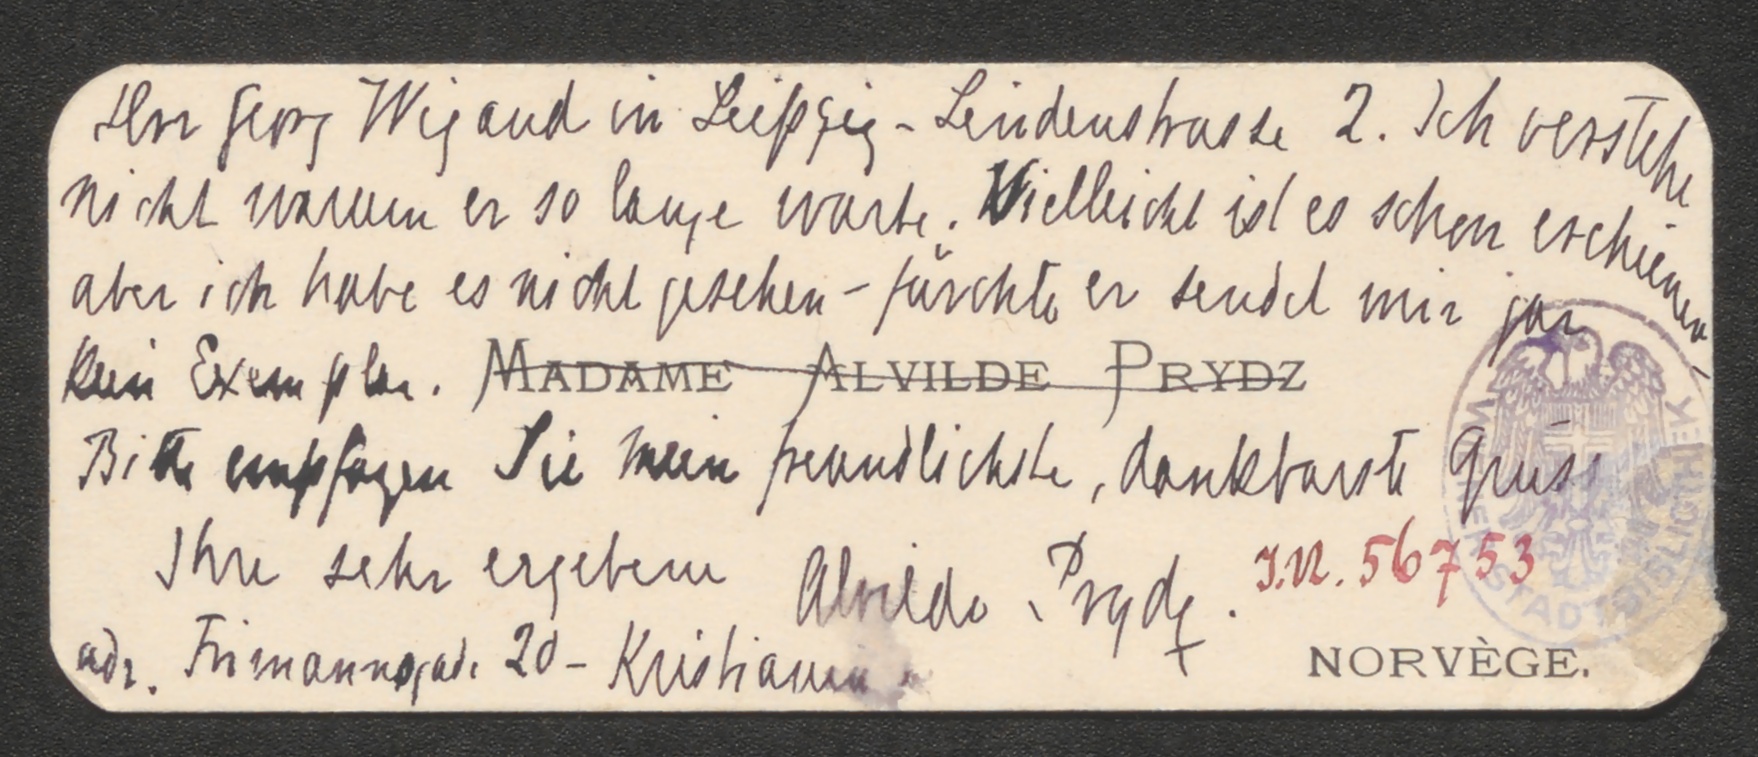 Herr Georg Wigand in Leipzig - Lindenstrasse 2. Ich verstehe
nicht warum er so lange warte. Vielleicht ist es schon erschienen -
aber ich habe es nicht gesehen - fürchte er sendet mir gar
kein Exemplar. MADAME ALVILDE PRYDZ
Bitte empfagen Sie mein freundlichste, dankbarste Gruss
Ihre sehr ergebene Alvilde Prydz.
J.N. 56753
adr. Frimannsgade 20 - Kristiania
NORVÈGE.
WIENER STADTBIBLIOTHEK